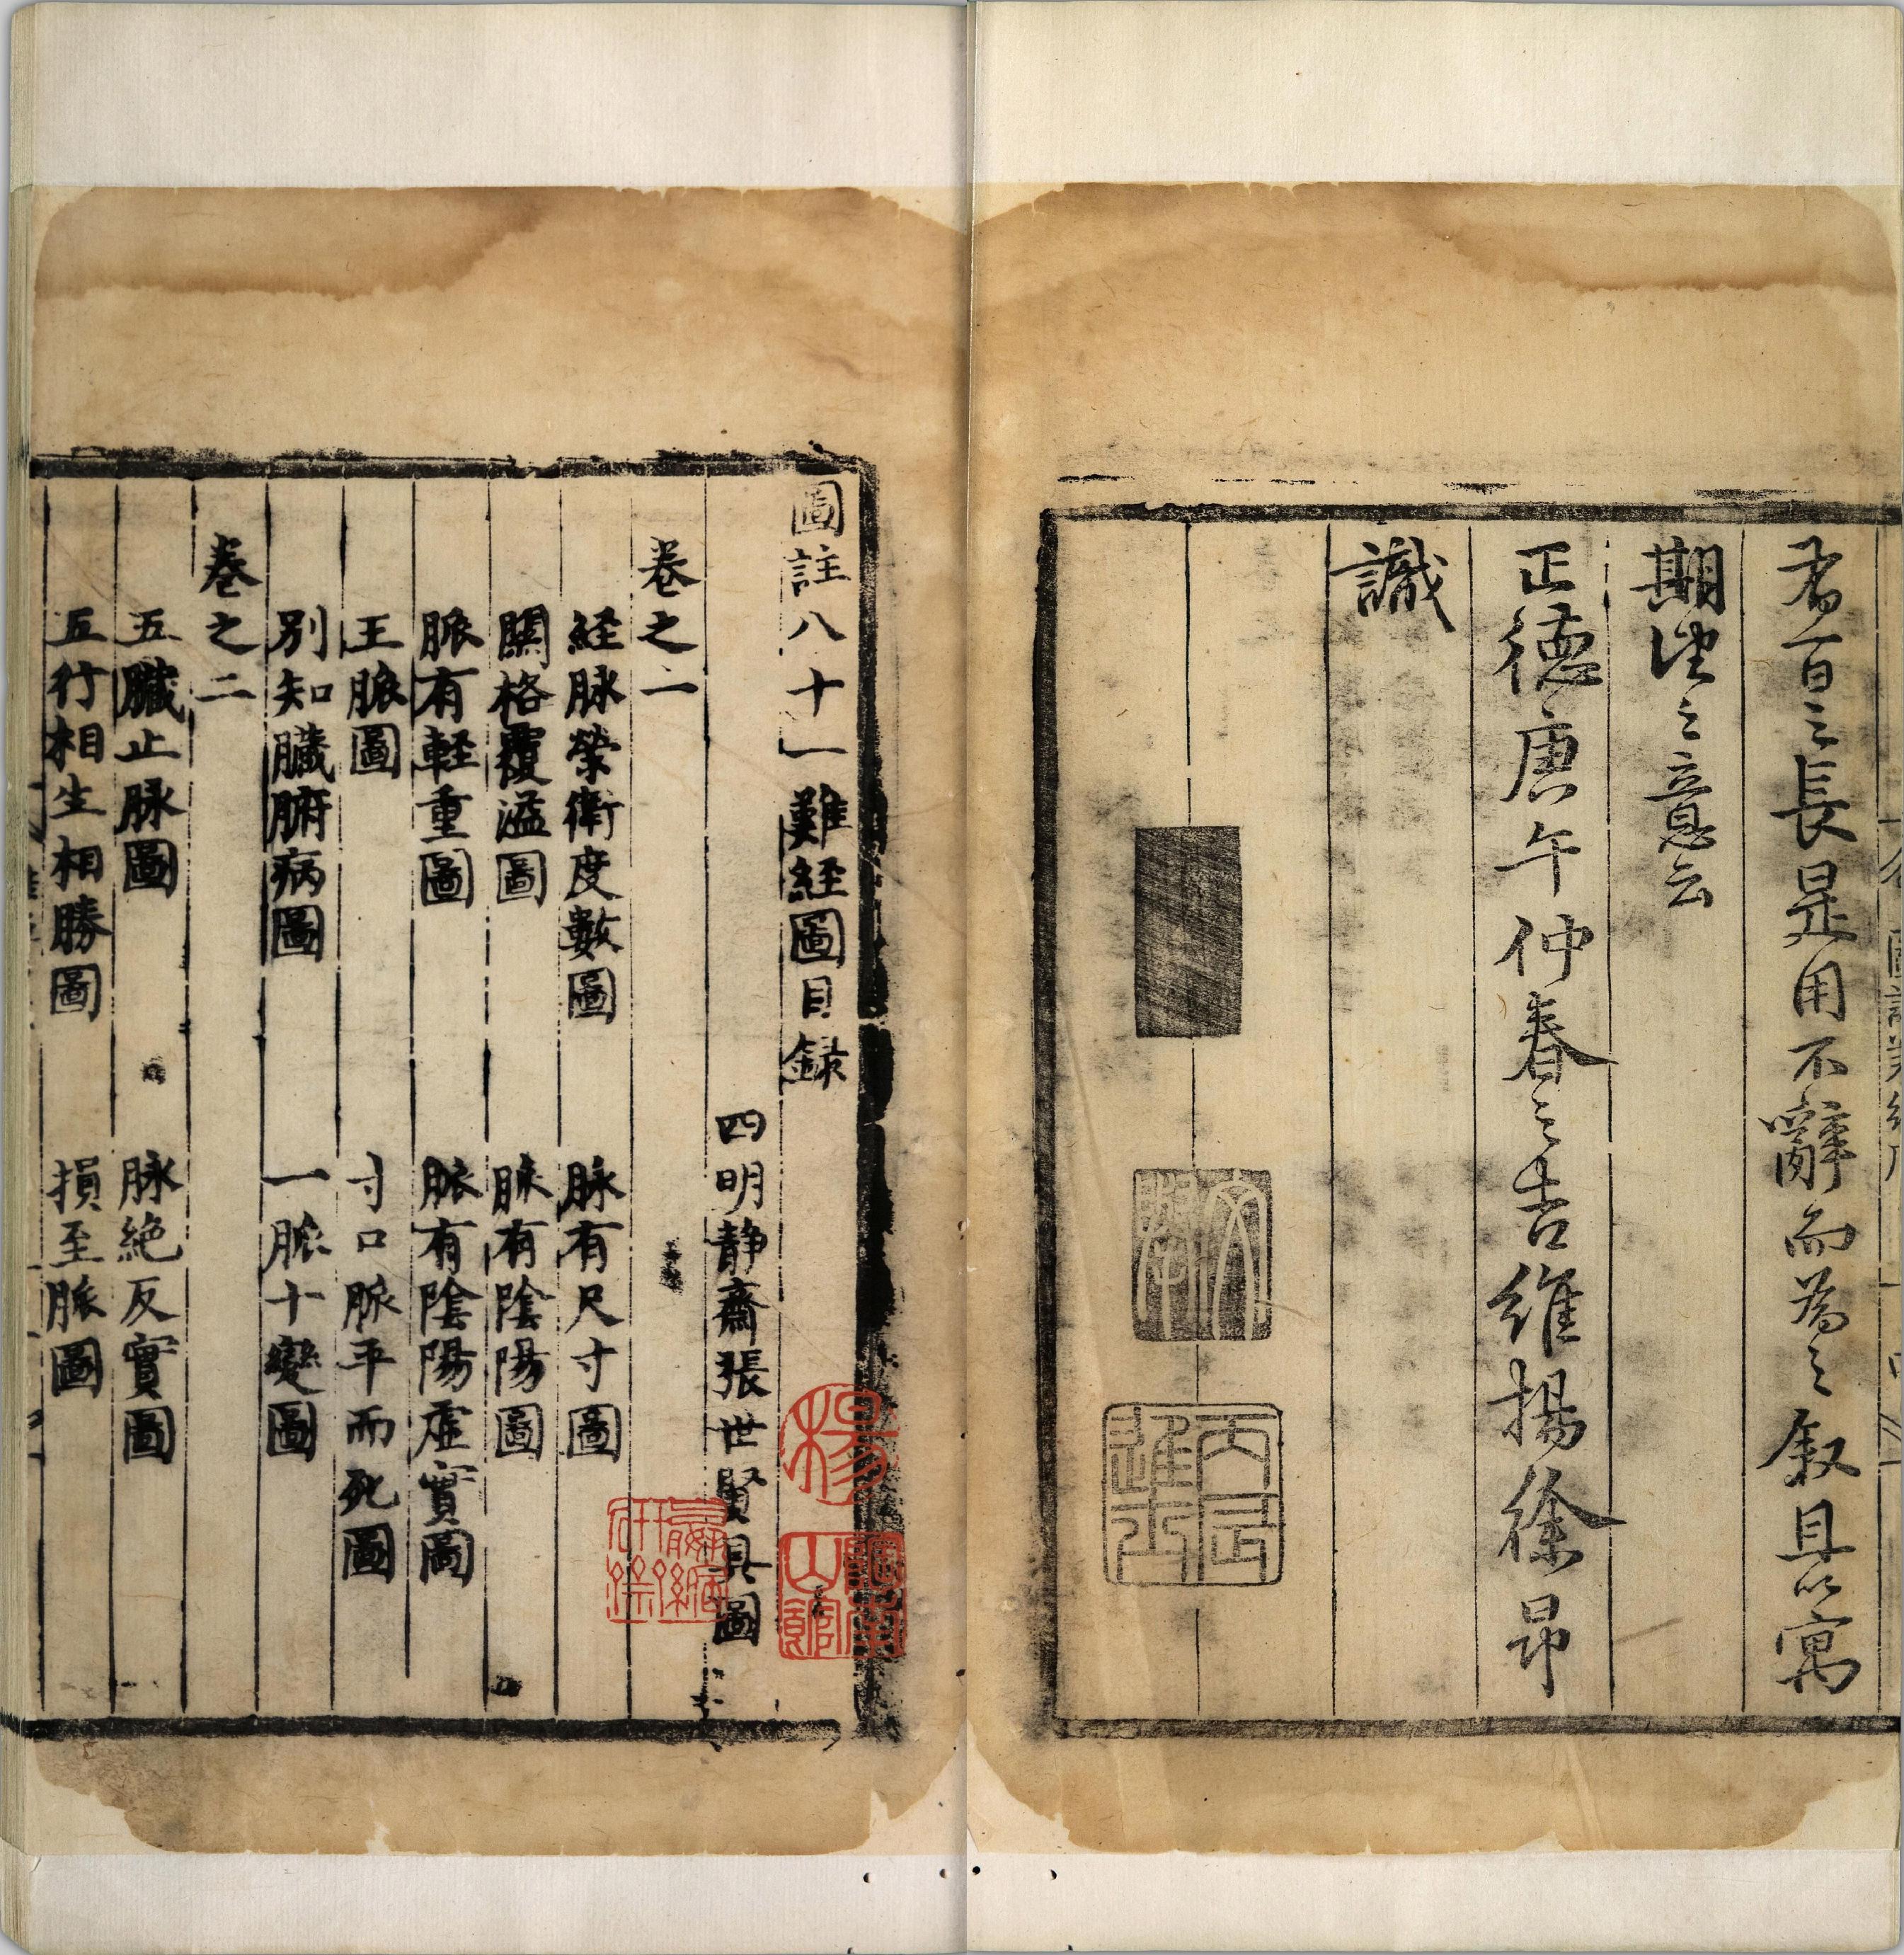 者百之長是用不辭而為之叙且以寓
期望之意云
正德庚午仲春之吉維揚徐昂
識
丙辰進士
圖註八十一難經圖目録
四明静齋張世賢具圖
卷之一
経脉榮衛度數圖　脉有尺寸圖
關格覆溢圖　脉有陰陽圖
脈有軽重圖　脈有陰陽虛實圖
王脈圖　寸口脈平而死圖
別知臓腑病圖　一脈十變圖
卷之二
五臓止脉圖　脉絶反實圖
五行相生相勝圖　損至脈圖
楊
山館